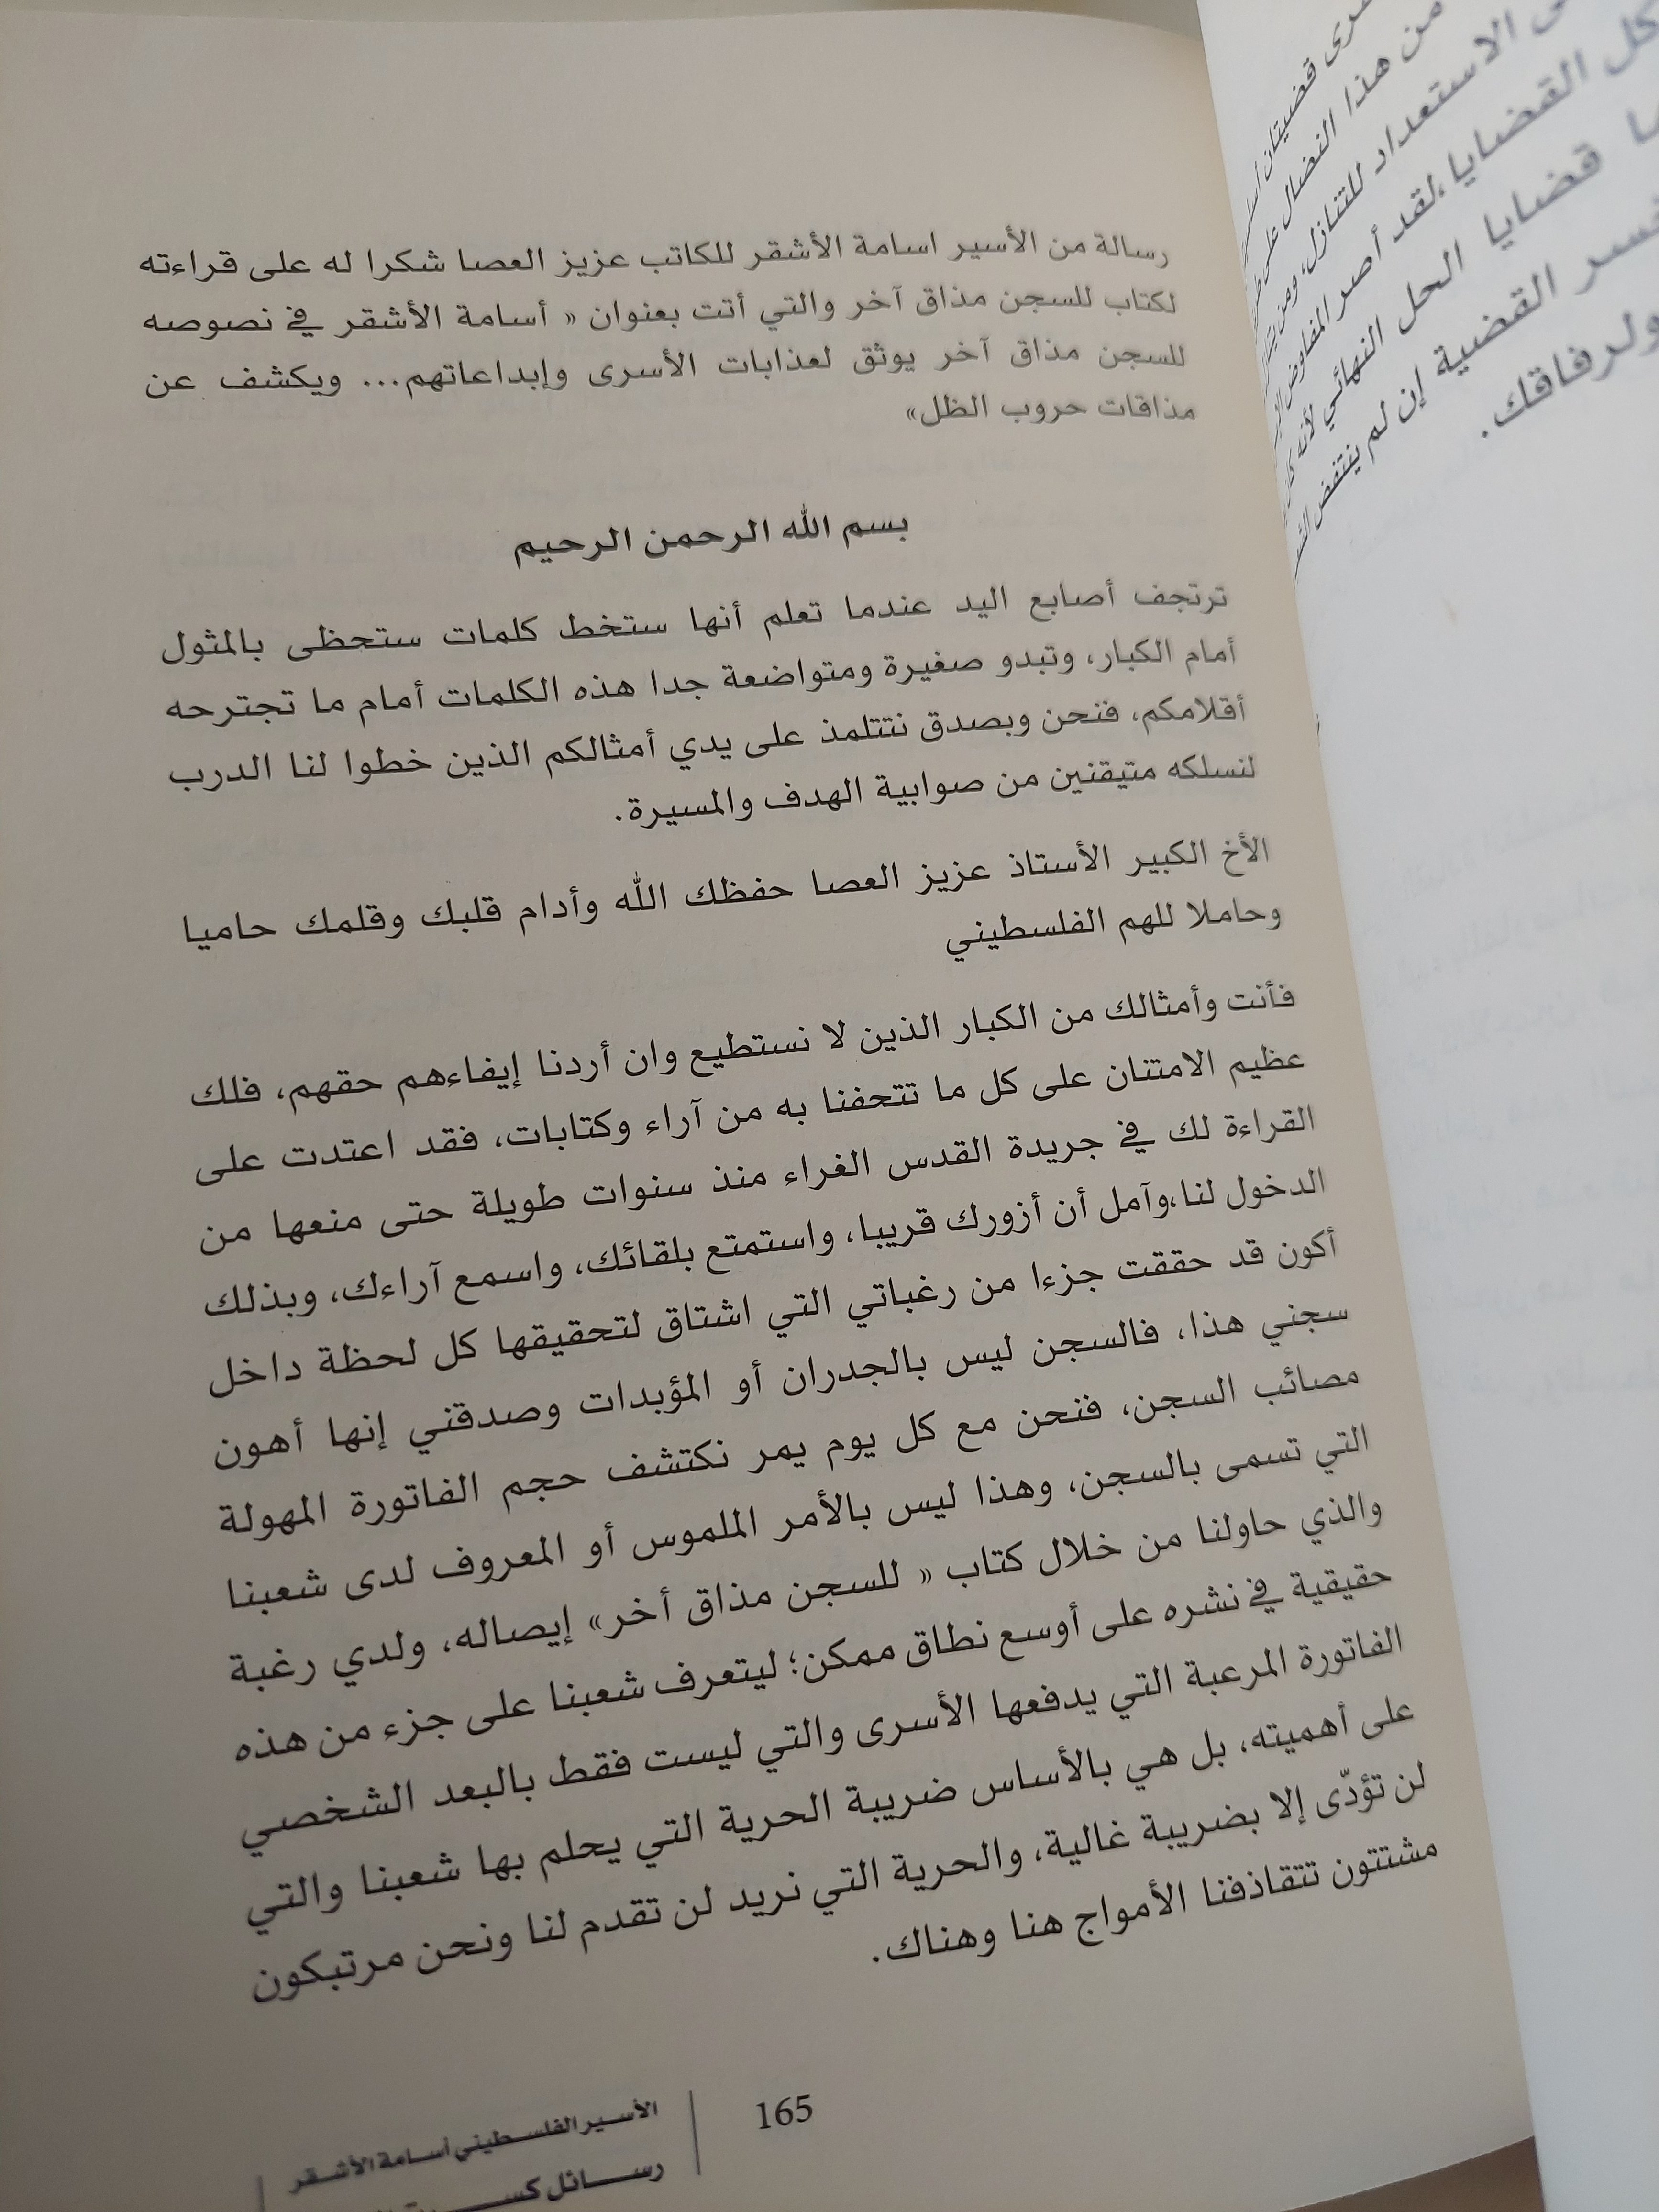 رسالة من الأسير اسامة الأشقر للكاتب عزيز العصا شكرا له على قراءته
لكتاب للسجن مذاق آخر والتي أتت بعنوان « أسامة الأشقر في نصوصه
للسجن مذاق آخر يوثق لعذابات الأسرى وإبداعاتهم... ويكشف عن
مذاقات حروب الظل»
بسم الله الرحمن الرحيم
ترتجف أصابع اليد عندما تعلم أنها ستخط كلمات ستحظى بالمثول
أمام الكبار، وتبدو صغيرة ومتواضعة جدا هذه الكلمات أمام ما تجترحه
أقلامكم، فنحن وبصدق نتتلمذ على يدي أمثالكم الذين خطوا لنا الدرب
لنسلكه متيقنين من صوابية الهدف والمسيرة.
الأخ الكبير الأستاذ عزيز العصا حفظك الله وأدام قلبك وقلمك حاميا
وحاملا للهم الفلسطيني
فأنت وأمثالك من الكبار الذين لا نستطيع وان أردنا إيفاءهم حقهم، فلك
عظيم الامتنان على كل ما تتحفنا به من آراء وكتابات، فقد اعتدت على
القراءة لك في جريدة القدس الغراء منذ سنوات طويلة حتى منعها من
الدخول لنا،وآمل أن أزورك قريبا، واستمتع بلقائك، واسمع آراءك، وبذلك
أكون قد حققت جزءا من رغباتي التي اشتاق لتحقيقها كل لحظة داخل
سجني هذا، فالسجن ليس بالجدران أو المؤبدات وصدقني إنها أهون
مصائب السجن، فنحن مع كل يوم يمر نكتشف حجم الفاتورة المهولة
التي تسمى بالسجن، وهذا ليس بالأمر الملموس أو المعروف لدى شعبنا
والذي حاولنا من خلال كتاب « للسجن مذاق أخر» إيصاله، ولدي رغبة
حقيقية في نشره على أوسع نطاق ممكن؛ ليتعرف شعبنا على جزء من هذه
الفاتورة المرعبة التي يدفعها الأسرى والتي ليست فقط بالبعد الشخصي
على أهميته، بل هي بالأساس ضريبة الحرية التي يحلم بها شعبنا والتي
لن تؤدّى إلا بضريبة غالية، والحرية التي نريد لن تقدم لنا ونحن مرتبكون
مشتتون تتقاذفنا الأمواج هنا وهناك.
165
الأسير الفلسطيني أسامة الأشقر
رسائل
قضيتان
من هذا النضال على
الاستعداد للتنازل، ومن
كل القضايا،لقد أصر المفاوض
قضايا الحل النهائي لأنه
القضية إن لم ينتفض
ولرفاقك.